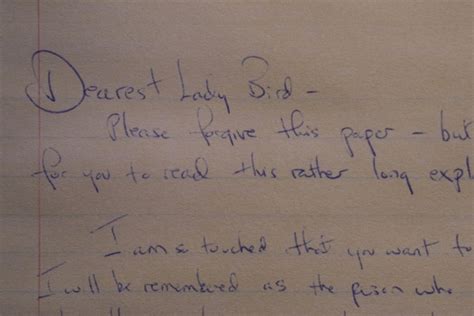 Dearest Lady Bird -
Please forgive this paper - but
for you to read this rather long expl
I am so touched that you want to
I will be remembered as the person who